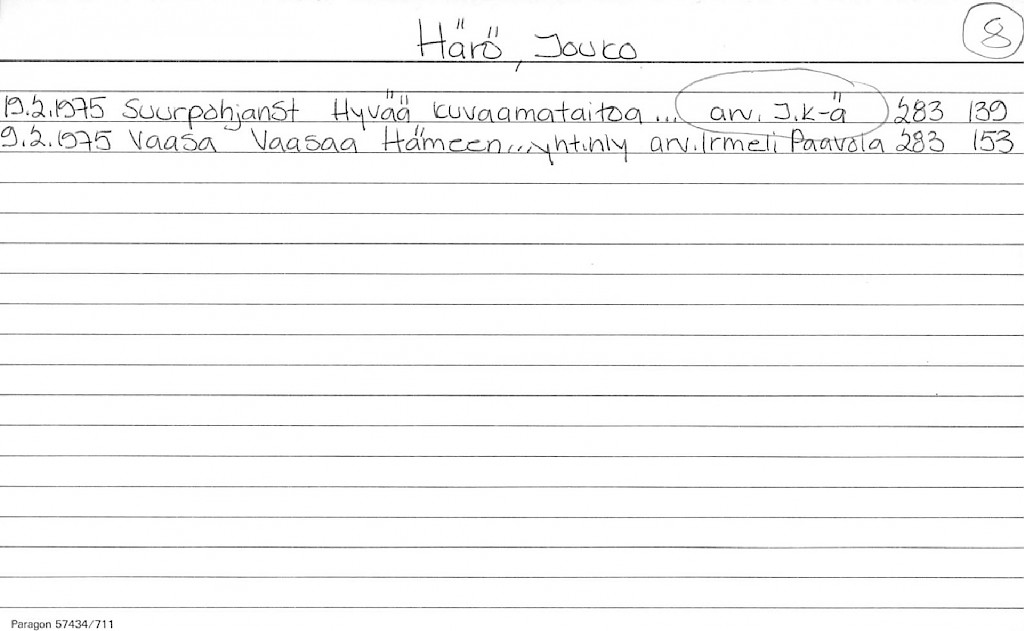 Härö, Jouko
8
19.2.1975 Suurpohjanst Hyvää kuvaamataitoa... arv. J.k-ä 283 139
9.2.1975 Vaasa Vaasaa Hämeen...yht.nly arv. Irmeli Paavola 283 153
Paragon 57434/711